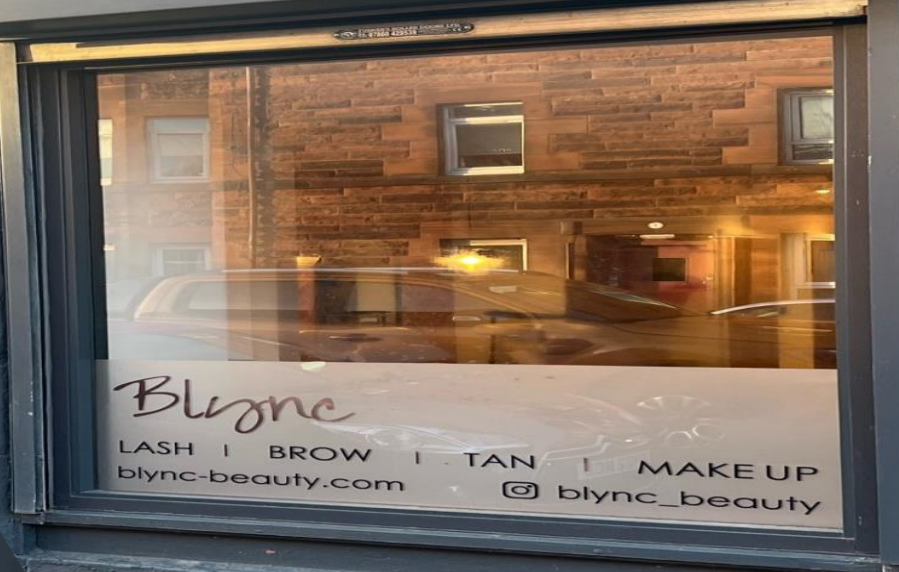 Blync
LASH | BROW | TAN | MAKE UP
blync-beauty.com
blync_beauty